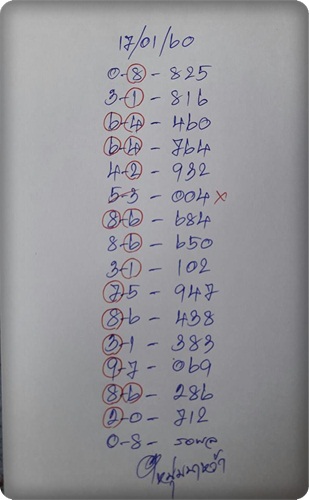 17/01/60
0-8-825
3-1-816
6-4-460
6-4-764
4-2-932
5-3-004x
8-6-684
8-6-650
3-1-102
7-5-947
8-6-438
3-1-383
9-7-069
8-6-286
2-0-712
0-8-รอผล